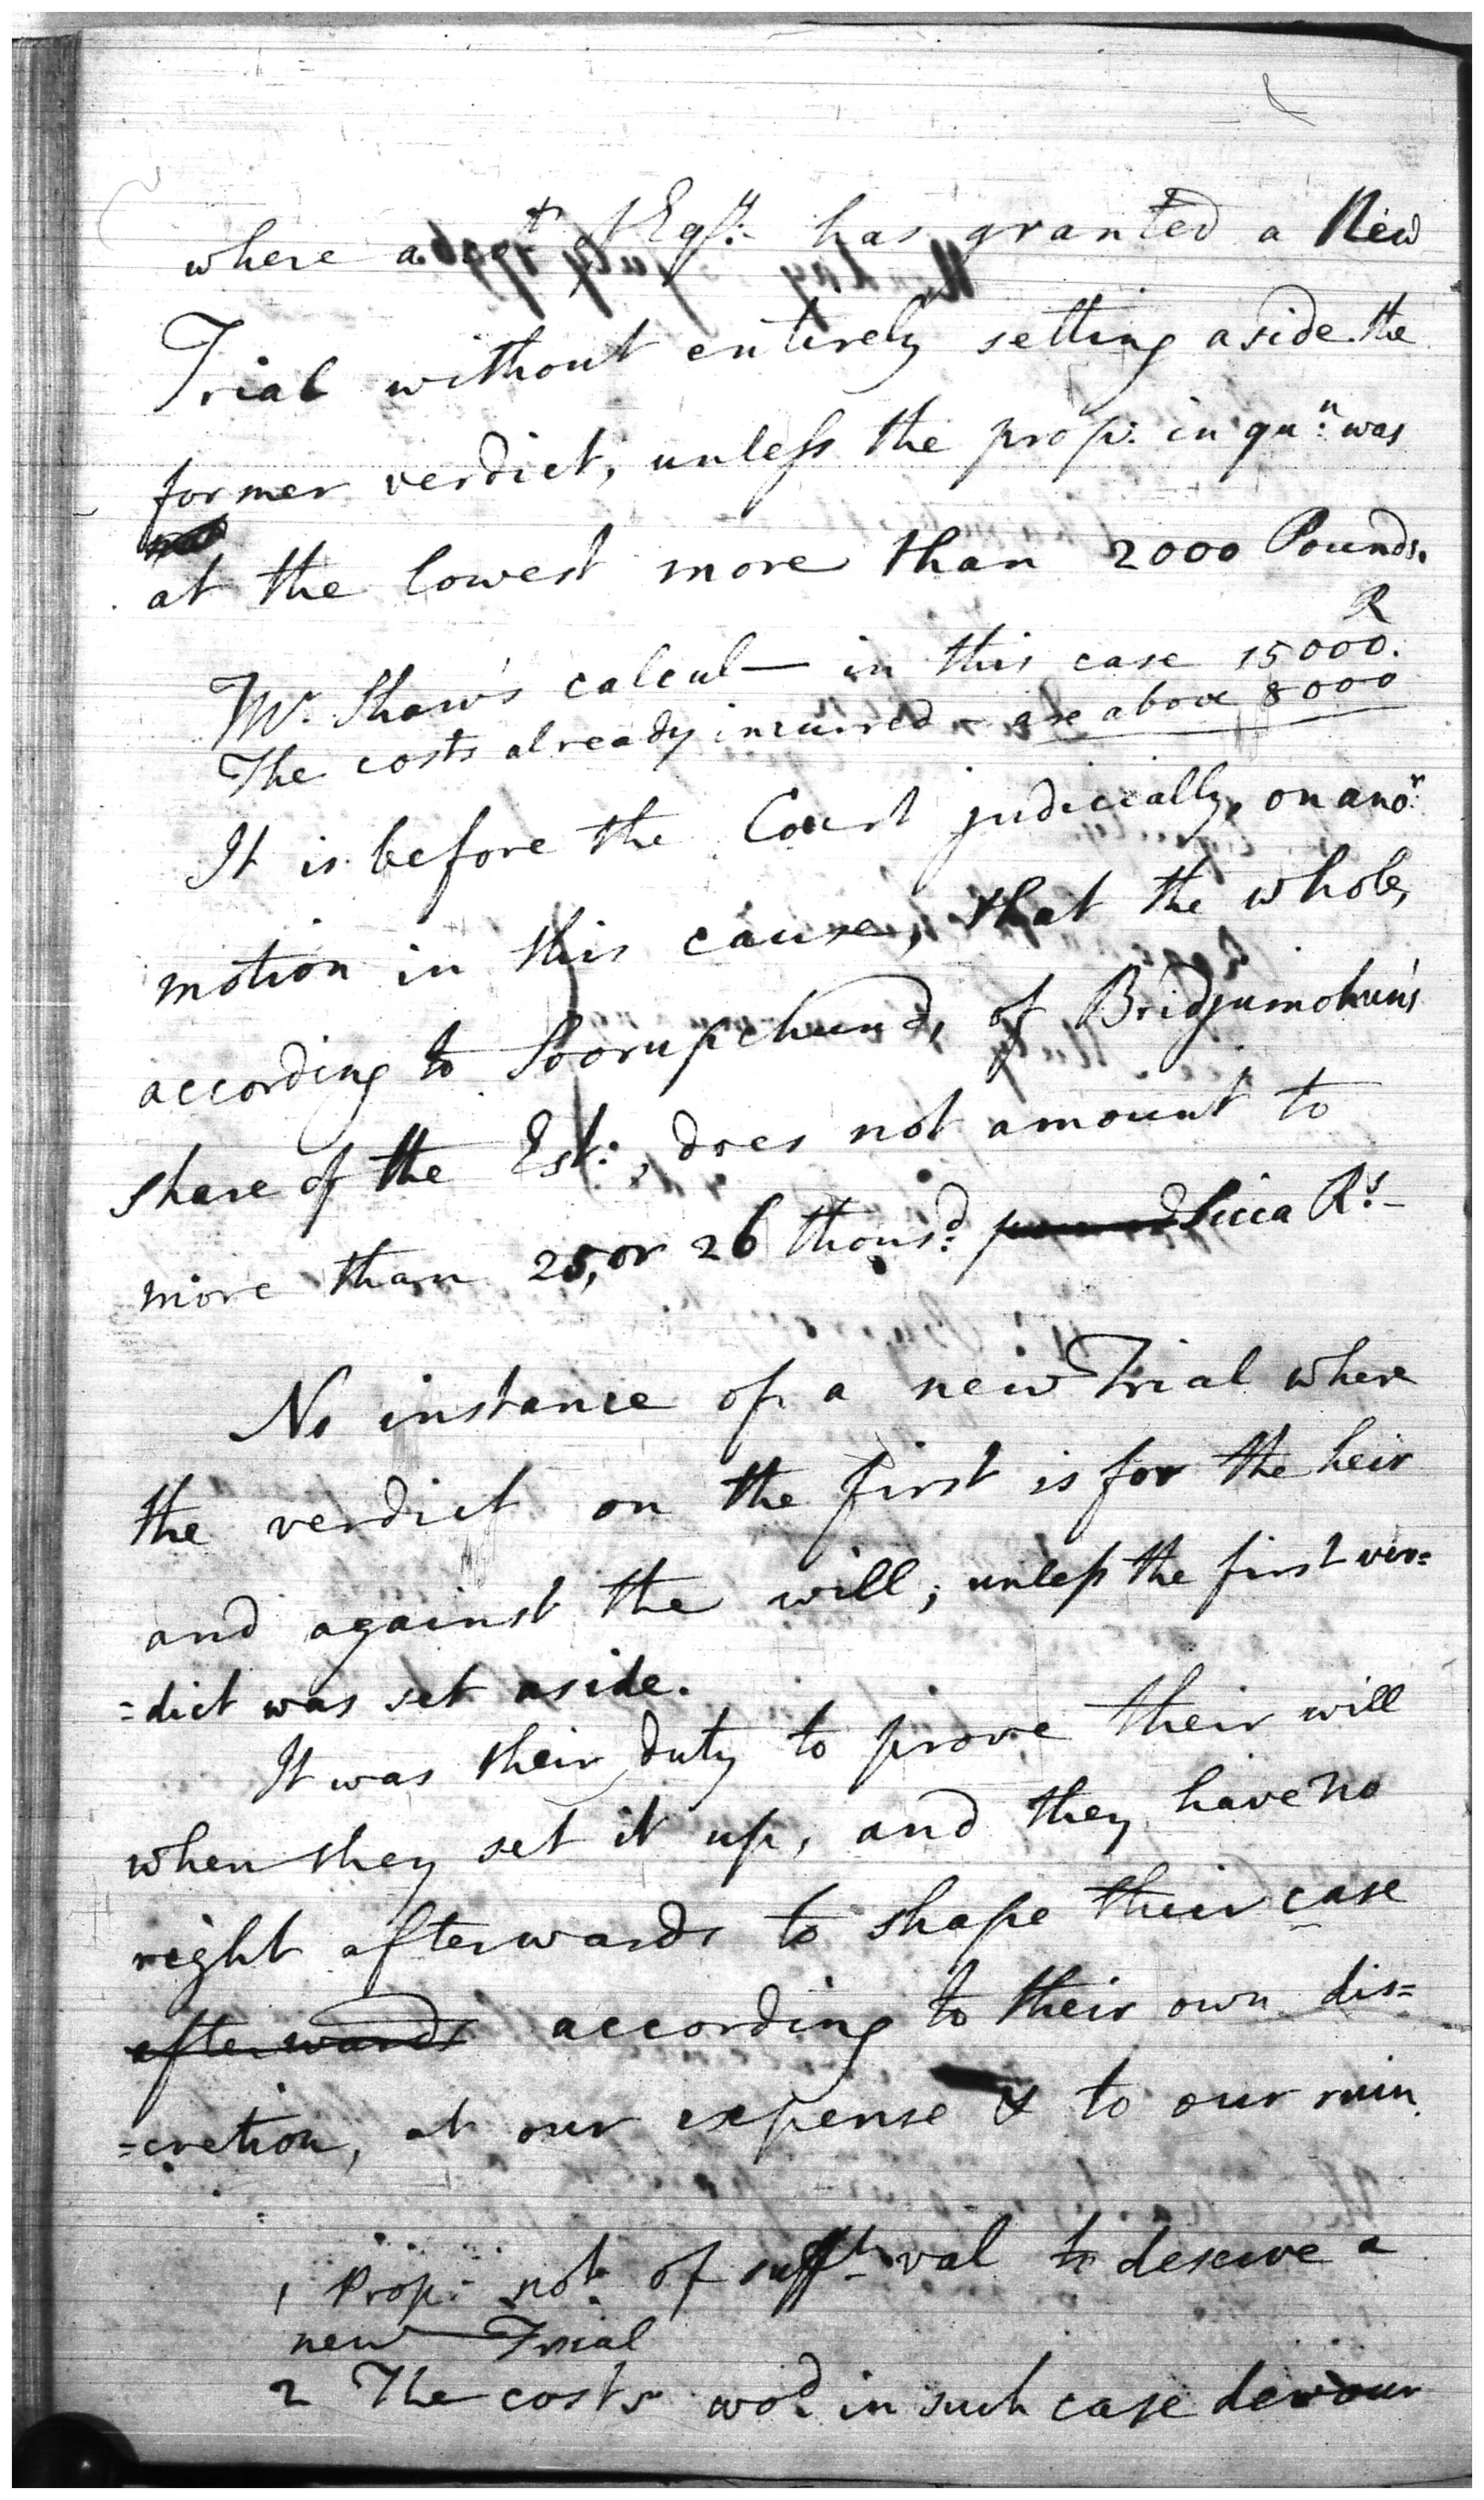 where a co^t of Eq^y: has granted a New
Trial without entirely setting aside the
former verdict, unless the prop: in qu^n: was
at the lowest more than 2000 Pounds.
R
M^r. Shaw's calcul— in this case 15000.
The costs already incurred are above 8000
It is before the Court judicially, on ano^r:
motion in this cause, that the whole,
according to Soorupchund, of Bridjumohun's
share of the Est:, does not amount to
more than 25, or 26 thous^d: Sicca R^s.
No instance of a new Trial where
the verdict on the first is for the heir
and against the will; unless the first ver=
=dict was set aside.
It was their duty to prove their will
when they set it up, and they have no
right afterwards to shape their case
afterwards according to their own dis=
=cretion, at our expense & to our ruin.
1 Prop: not of suff^t val to deserve a
new Trial
2 The costs wo^d: in such case devour